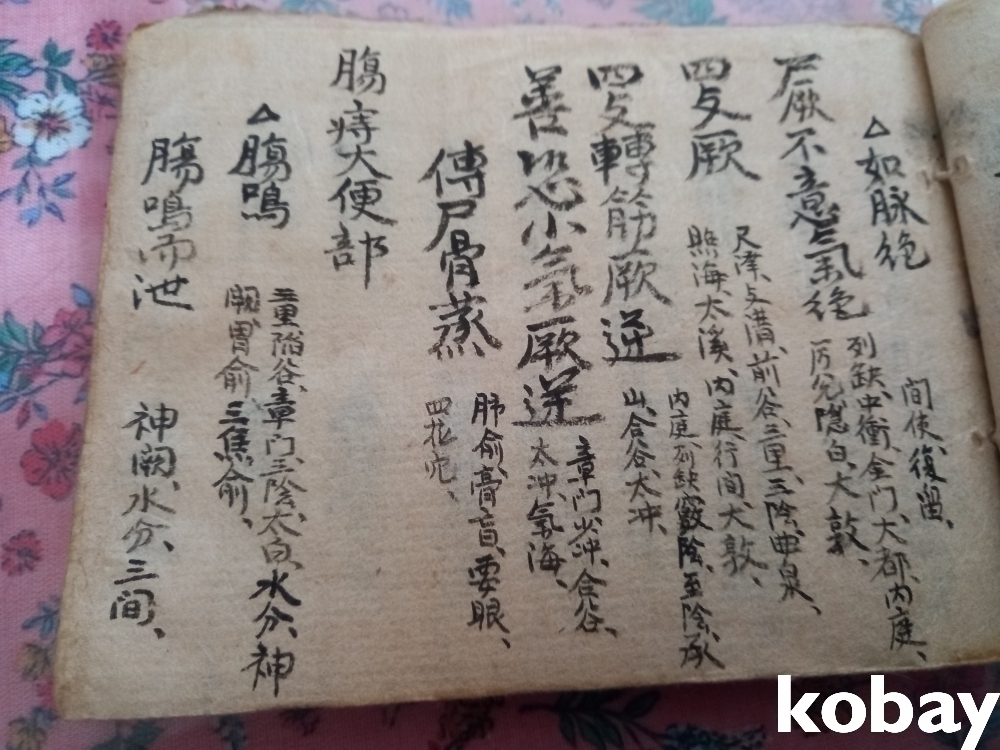 △如脉絶
間使、復溜、
尸厥不意氣絶
列缺、中衝、金門、大都、内庭、
厉兌、隐白、大敦、
四支厥
尺澤、支溝、前谷、三里、三陰、曲泉、
照海、太溪、内庭、行间、大敦、
四支轉筋厥逆
内庭、列缺、竅陰、至陰、承
山、合谷、太冲、
善恐心小氣厥逆
章門、少冲、合谷、
太冲、氣海、
傳尸骨蒸
肺俞、膏盲、要眼、
四花穴、
腸痔大便部
△腸鳴
三里、陷谷、章門、三陰、太白、水分、神
闕、胃俞、三焦俞、
腸鳴而泄
神闕、水分、三间、
kobay